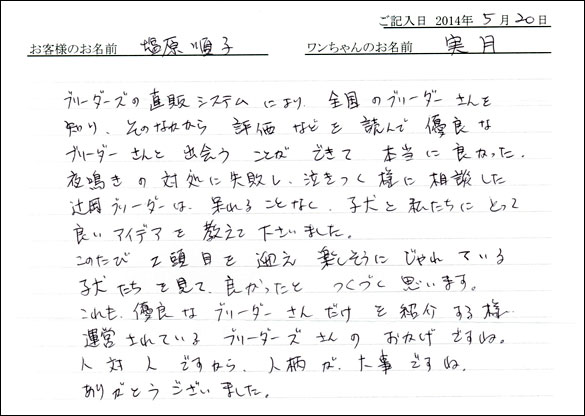 ご記入日 2014年 5月 20日
お客様のお名前 塩原 順子 ワンちゃんのお名前 実月
ブリーダーズの直販システムにより、全国のブリーダーさんを
知り、そのなかから 評価などを読んで 優良な
ブリーダーさんと出会うことができて本当に良かった。
夜鳴きの対処に失敗し、泣きつく様に相談した
辻岡ブリーダーは、呆れることなく、子犬と私たちにとって
良いアイデアを教えて下さいました。
このたび2頭目を迎え 楽しそうにじゃれている
子犬たちを見て、良かったと つくづく思います。
これも、優良なブリーダーさんだけを紹介する様
運営されているブリーダーズさんのおかげですね。
人対人ですから、人柄が、大事ですね。
ありがとうございました。